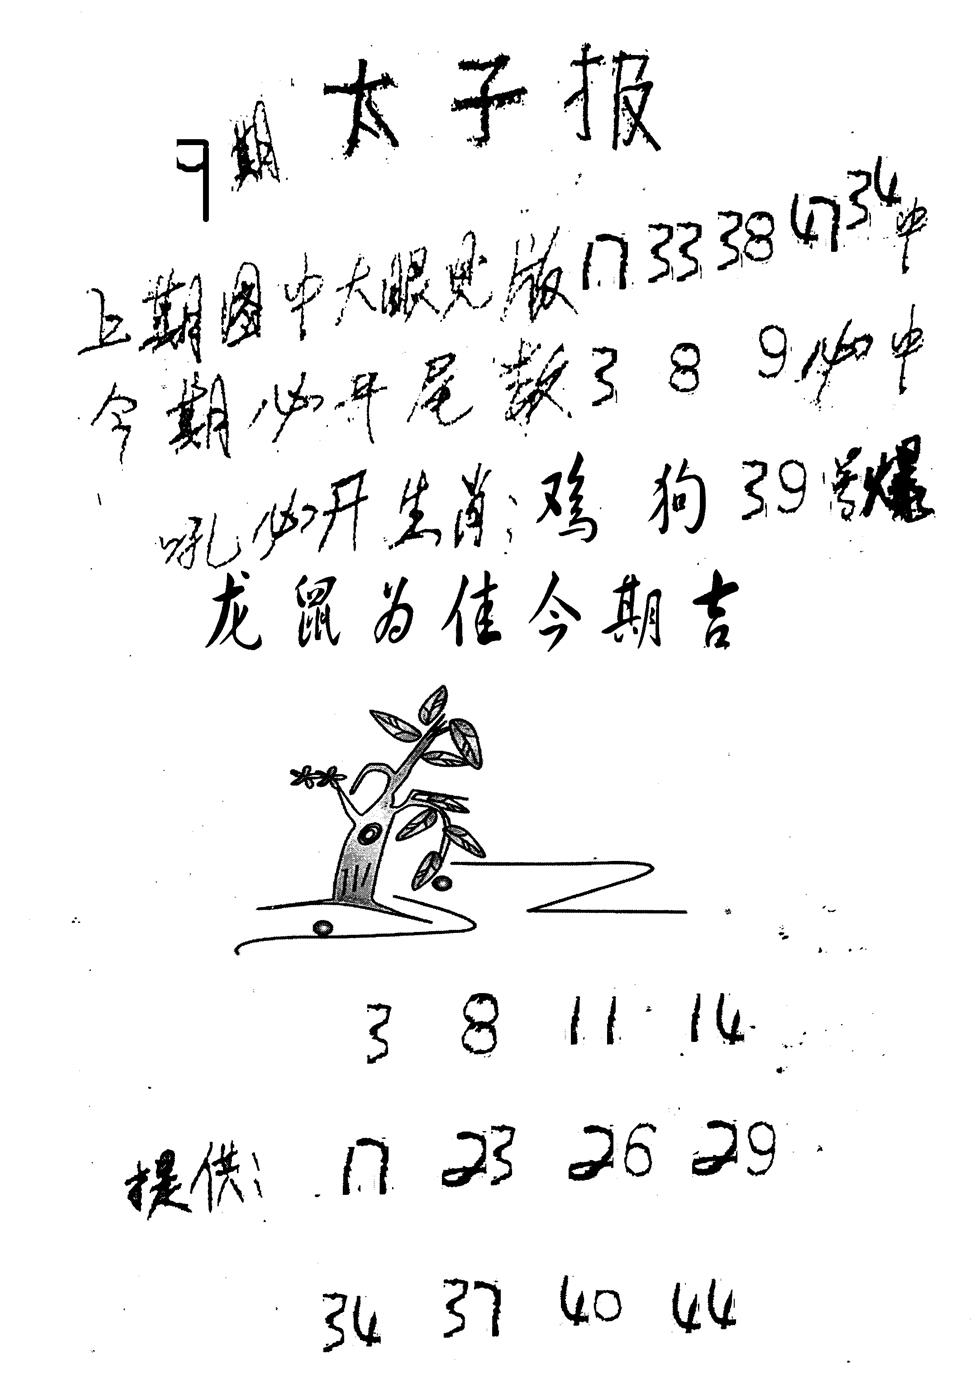 太子报
9期
上期图中大眼见版 17 33 38 47 34中
今期必开尾数 3 8 9必中
吼必开生肖:鸡 狗 39营爆
龙鼠为佳今期吉
3 8 11 14
提供: 17 23 26 29
34 37 40 44